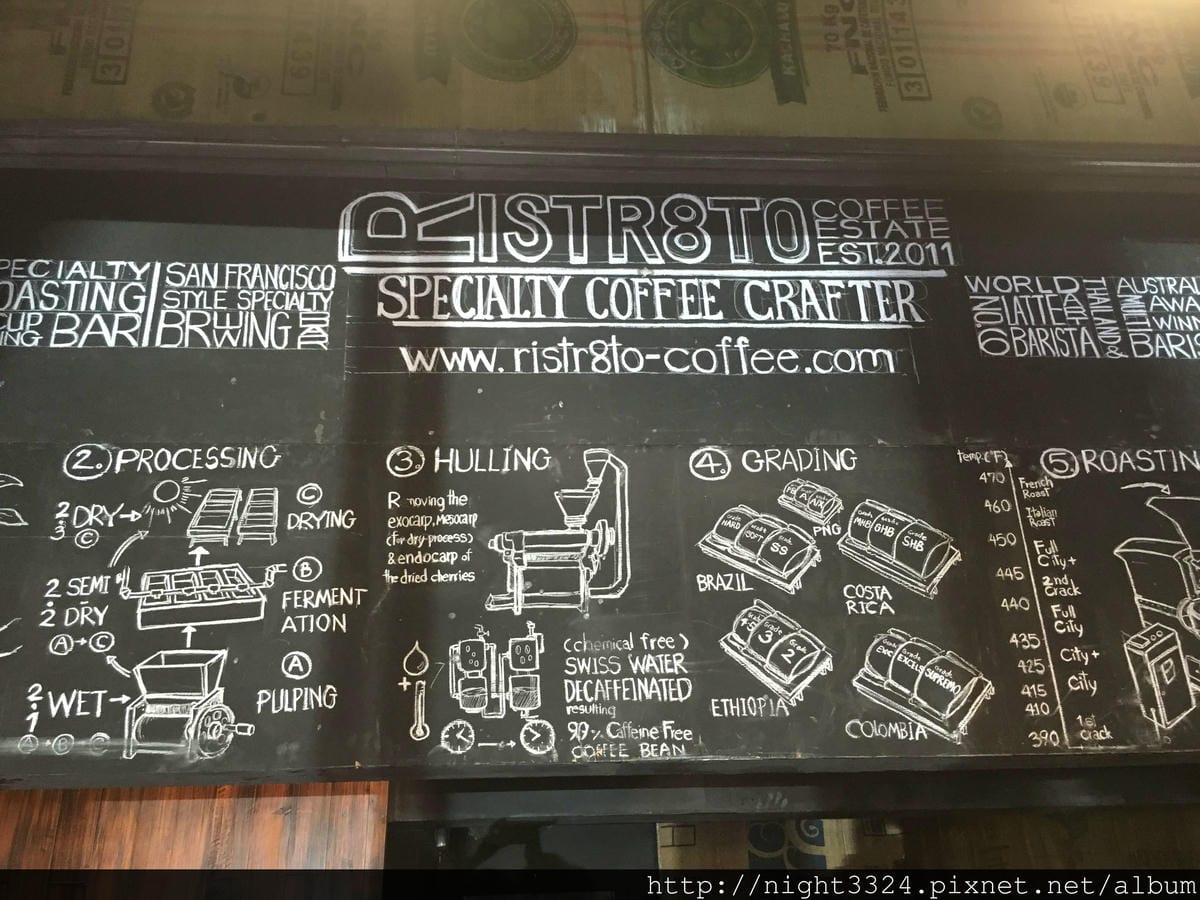 70 Kg
FNC
301143
39
RISTR8TO
COFFEE
ESTATE
EST.2011
SPECIALTY COFFEE CRAFTER
www.ristr8to-coffee.com
PECIALTY
OASTING
CUP
ING BAR
SAN FRANCISCO
STYLE SPECIALTY
BRWING
WORLD
NO.6
LATTE
ART
BARISTA
THAILAND
&
AUSTRAL
MULTI
AWA
WINN
BARIS
2. PROCESSING
2.3 DRY
C
2.2 SEMI
DRY
A → C
2.1 WET
A → B → C
C
DRYING
B
FERMENT
ATION
A
PULPING
3. HULLING
R moving the
exocarp, Mesocarp
(for dry-process)
& endocarp of
the dried cherries
+
(chemical free)
SWISS WATER
DECAFFEINATED
resulting
99% Caffeine Free
COFFEE BEAN
4. GRADING
PB A A/X
PNG
Grade
HARD
SOFT
SS
BRAZIL
Grade
MHB
GHB
Grade
SHB
COSTA
RICA
+5
3
Grade
2
ETHIOPIA
EXC
EXCELSO
Grade
SUPREMO
COLOMBIA
temp.(°F)
5. ROASTIN
470
French
Roast
460
Italian
Roast
450
Full
City+
445
2nd
crack
440
Full
City
435
City+
425
City
415
410
390
1st
crack
http://night3324.pixnet.net/album